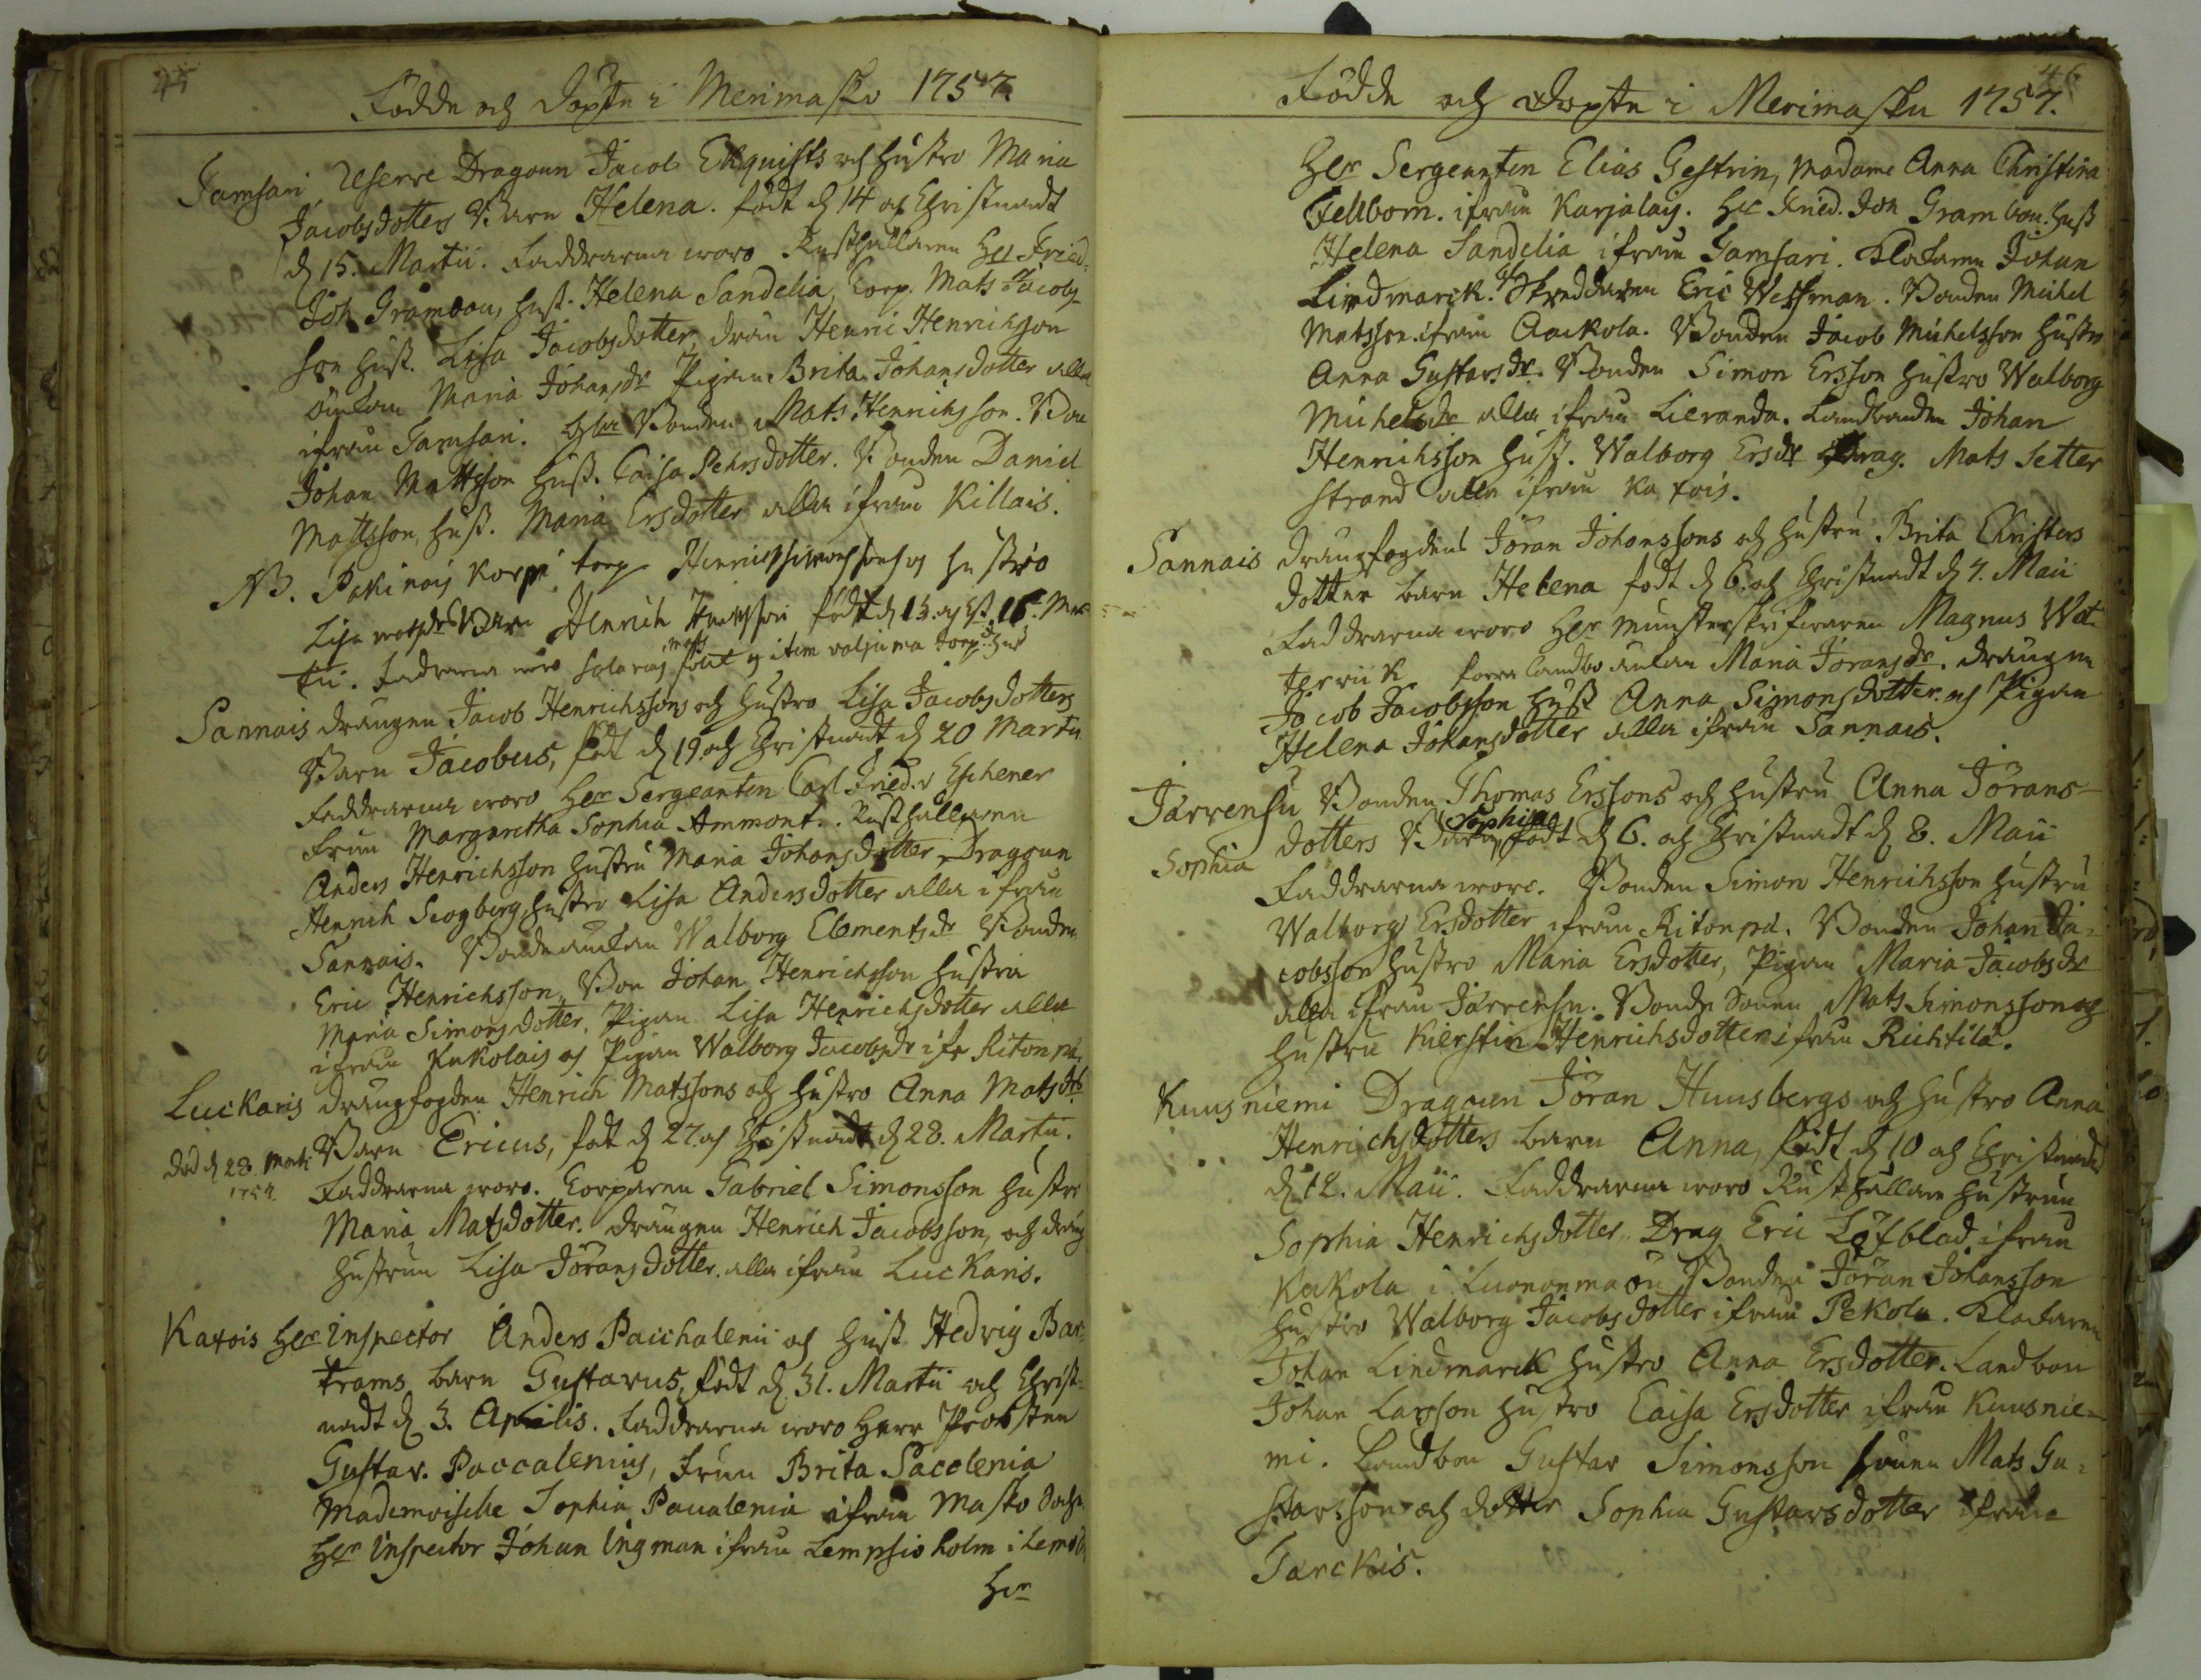 45
Födde och döpte i Merimasko 1757.
Tamsari, Reserve Dragoun Jacob Ekquists och hustro Maria
Jacobsdotters Barn Helena. född d 14 och Christnadt
d 15. Martii. Faddrarna woro Rusthållaren Hr Fried:
Joh. Grambou, hust. Helena Sandelia, Corp. Mats Jacobs
son hust. Lisa Jacobsdotter, drän Henric Henrichsson
änkan Maria Johansdr Pigan Brita Johansdotter alla
ifrån Tamsari. Bonden Mats Henrichsson. Bon
Johan Mattsson hust. Caisa Pehrsdotter. Bonden Daniel
Mattsson, hust. Maria Ersdotter alla ifrån Killais.
NB. Pakinais Korpi torp Henrich Simonssons och hustro
Lisa matsdr Barn Henrich Henrichsson född d 15. och 16 Mar
tii. Fadrarna woro
Sannais drängen Jacob Henrichssons och hustro Lisa Jacobsdotters
Barn Jacobus, född d 19. och Christnadt d 20 Martii
Faddrarna woro Her Sergeanten Carl Fried. Eschener
Frun Margaretha Sophia Ammont. Rusthållaren
Anders Henrichsson hustru Maria Johansdotter, Dragoun
Henrich Scogberg, hustro Lisa Andersdotter alla ifrån
Sannais. Bondeänkan Walborg Clementsdr Bonden
Eric Henrichsson, Bon Johan Henrichsson hustru
Maria Simonsdotter, Pigan Lisa Henrichsdotter alla
ifrån Kukolais och Pigan Walborg Jacobsdr ifr Ritonpä
Luckaris drängfogden Henrich Matssons och hustro Anna Matsdrs
död d 28 Marti 1757.
Barn Ericus, född d 27. och Christnadt d 28. Martii.
Faddrarna woro. Corparen Gabriel Simonsson hustro
Maria Matsdotter. drängen Henrich Jacobsson, och dräng
hustrun Lisa Jöransdotter. alla ifrån Luckaris.
Katois Her Inspector Anders Paichalenii och hust Hedvig Bar
trams barn Gustavus, född d 31. Martii och Christ=
nadt d 3. Aprilis. Faddrarna woro Herr Probsten
Gustav. Paccalenius, Frun Brita Pacclenia
Mademoiselle Sophia Pacalenia ifrån Masko
Her Inspector Johan Ingman ifrån Lempsio holm i Lemo
Her
46
Födde och döpte i Merimasku 1757.
Her Sergeanten Elias Gestrin, Madame Anna Christina
Fellbom. ifrån Karjalais. Her Fried. Joh Grambou. hust
Helena Sandelia ifrån Tamsari. Klokaren Johan
Lindmarck. Skreddaren Eric Westman. Bonden Michel
Matsson. ifrån Aackola. Bonden Jacob Michelsson hustro
Anna Gustavsdr. Bonden Simon Ersson hustro Walborg
Michelsdr alla ifrån Lieranda. Landbonden Johan
Henrichsson hust. Walborg Ersdr Drag. Mats Setter
strand alla ifrån Katois.
Sannais drängfogdens Jöran Johanssons och hustru Brita Christers
dotter barn Helena född d 6. och Christnadt d 7. Maii
Faddrarna woro Her Munsterskrifwaren Magnus Wet
terwik. förra Landbo ankan Maria Jöransdr. drängen
Jacob Jacobsson hust Anna Simonsdotter. och Pigan
Helena Johansdotter alla ifrån Sannais.
Järrensu Bonden Thomas Erssons och hustru Anna Jörans-
Sophia
dotters Barn Sophia född d 6. och Christnadt d 8. Maii
Faddrarna woro. Bonden Simon Henrichsson hustru
Walborg Ersdotter ifrån Ritonpä. Bonden Johan Ja=
cobsson hustro Maria Ersdotter, Pigan Maria Jacobsdr
alla ifrån Järrensu. Bonde sonen Mats Simonsson och
hustru Kierstin Henrichsdotter ifrån Riihtilä.
Kuusniemi Dragoun Jöran Huusbergs och hustro Anna
Henrichsdotters barn Anna, född d 10 och Christnadt
d 12. Maii. Faddrarna woro Rusthållare hustrun
Sophia Henrichsdotter, Drag Eric Löfblad ifrån
Kukola i Luononmaan Bonden Jöran Johansson
hustro Walborg Jacobsdotter ifrån Pekola. Klockaren
Johan Lindmarck hustro Anna Ersdotter. Landbon
Johan Larsson hustro Caisa Ersdotter ifrån Kuusnie-
mi. Landbon Gustav Simonsson sonen Mats Gu=
stavsson och dotter Sophia Gustavsdotter ifrån
Tarckis.